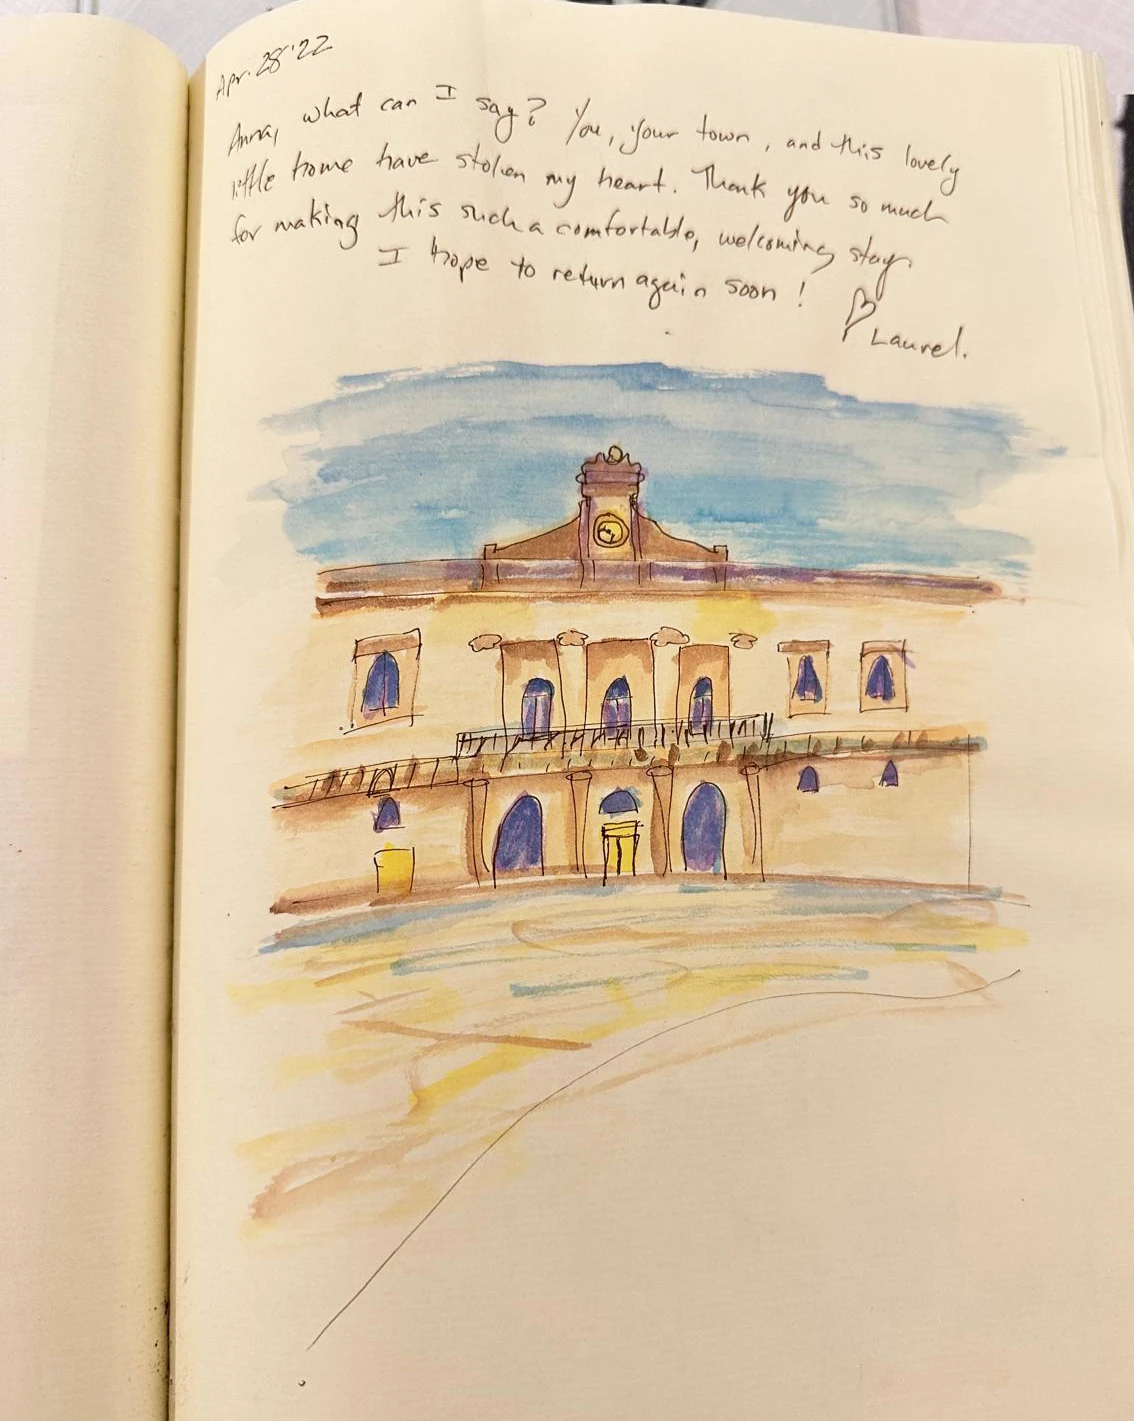 Apr. 28 '22
Anna, what can I say? You, your town, and this lovely
little home have stolen my heart. Thank you so much
for making this such a comfortable, welcoming stay.
I hope to return again soon!
Laurel.